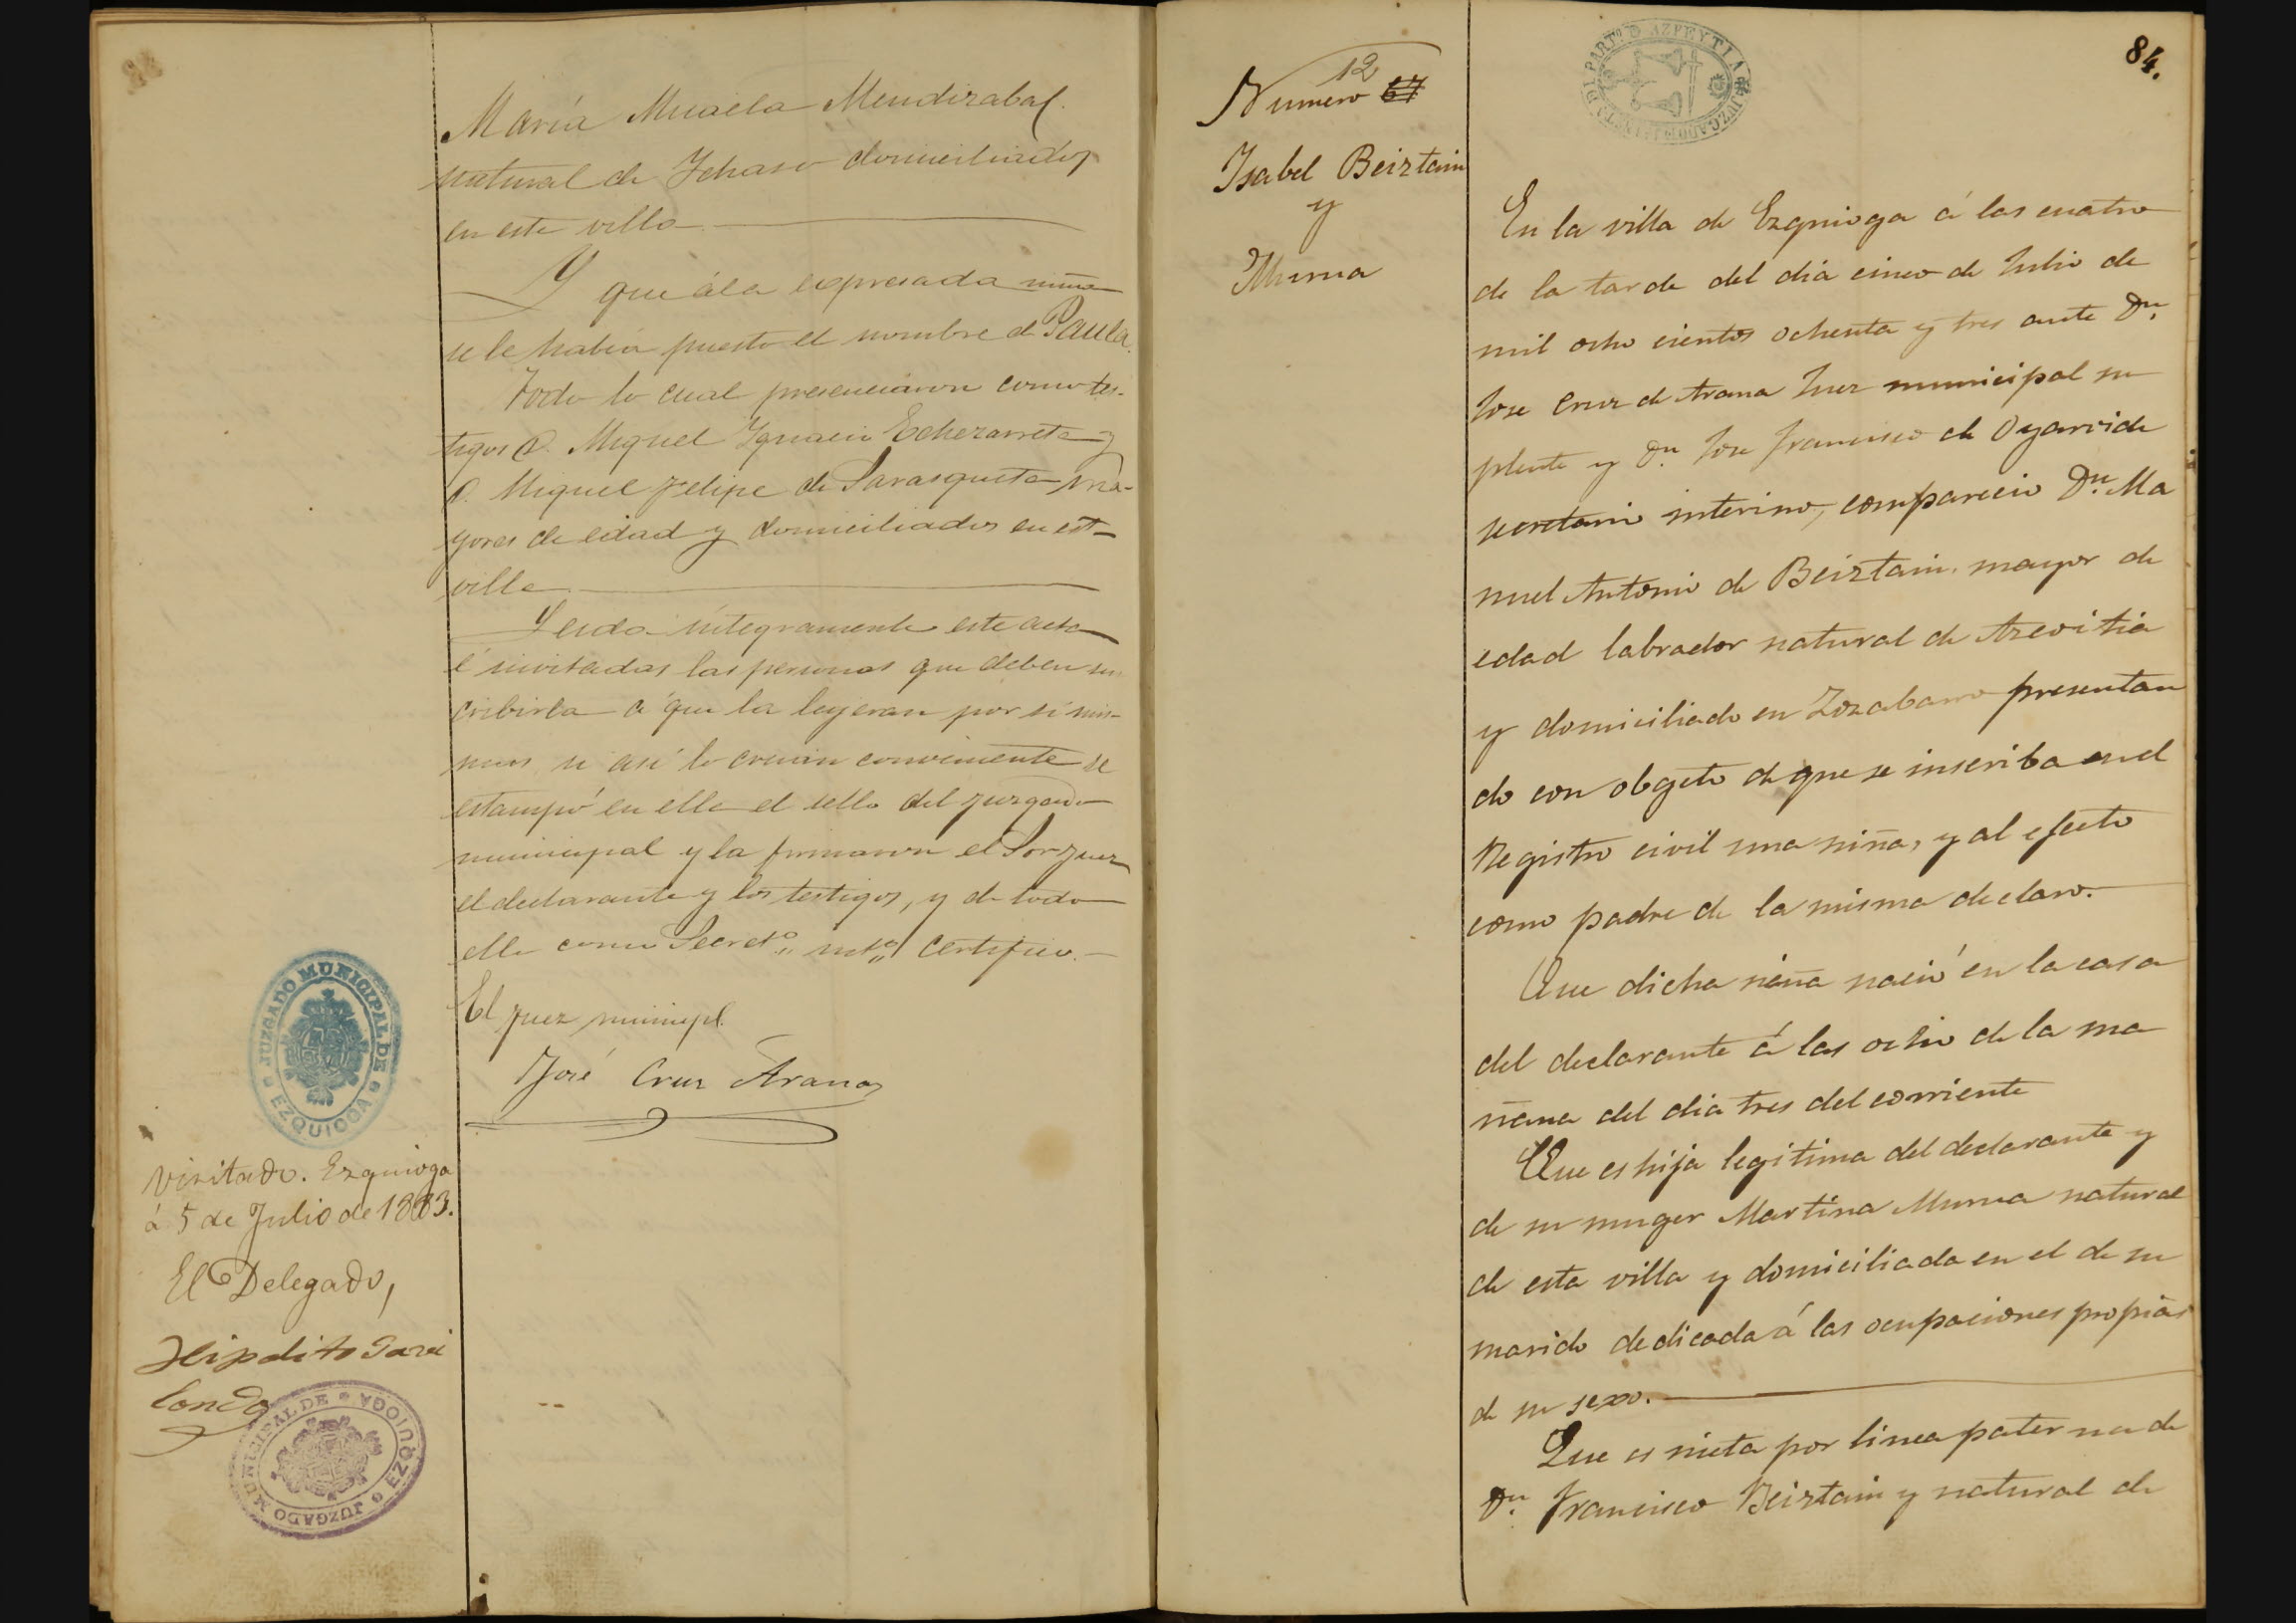 María Micaela Mendizabal.
natural de Ichaso domiciliados
en esta villa.
Y que á la expresada niña
se le habia puesto el nombre de Paula.
Todo lo cual presenciaron como tes-
tigos D. Miguel Ignacio Echezarreta y
D. Miguel Felipe de Sarasqueta ma-
yores de edad y domiciliados en esta
villa.
Leida integramente este acta
é invitadas las personas que deben sus
cribirla á que la leyeran por si mis-
mos si así lo creian conveniente se
estampó en ella el sello del juzgado
municipal y la firmaron el Sor Juez
el declarante y los testigos, y de todo
ello como Secret.º int.º certifico.
El Juez municipl.
José Cruz Arana
JUZGADO MUNICIPAL DE EZQUIOGA
Visitado. Ezquioga
á 5 de Julio de 1883.
El Delegado,
Hipolito
JUZGADO MUNICIPAL DE EZQUIOGA
84.
Numero 12 67
Isabel Beiztain
y
Murua
AZPEYTIA
En la villa de Ezquioga á las cuatro
de la tarde del dia cinco de Julio de
mil ocho cientos ochenta y tres ante Dn.
Jose Cruz de Arana Juez municipal su
plente y Dn Jose Francisco de Oyarvide
secretario interino, comparecio Dn. Ma
nuel Antonio de Beiztain, mayor de
edad labrador natural de Azcoitia
y domiciliado en Zozabarro presentan
do con obgeto de que se inscriba en el
Registro civil una niña, y al efecto
como padre de la misma declaro.
Que dicha niña nació en la casa
del declarante á las ocho de la ma
ñana del dia tres del corriente
Que es hija legitima del declarante y
de su muger Martina Murua natural
de esta villa y domiciliada en el de su
marido dedicada á las ocupaciones propias
de su sexo.
Que es nieta por linea paterna de
Dn. Francisco Beiztain y natural de